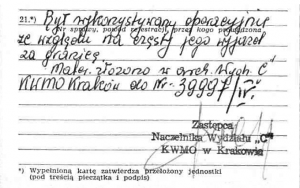 21.*) Był wykorzystywany operacyjnie
Nr sprawy, powód rejestracji, przez kogo prowadzona
ze względu na częsty jego wyjazd
za granicę
Mater. złożono w arch. Wydz. "C"
KWMO Kraków do Nr. 39997/
Zastępca
Naczelnika Wydziału „C"
KWMO w Krakowie
*) Wypełnioną kartę zatwierdza przełożony jednostki
(pod treścią pieczątka i podpis)